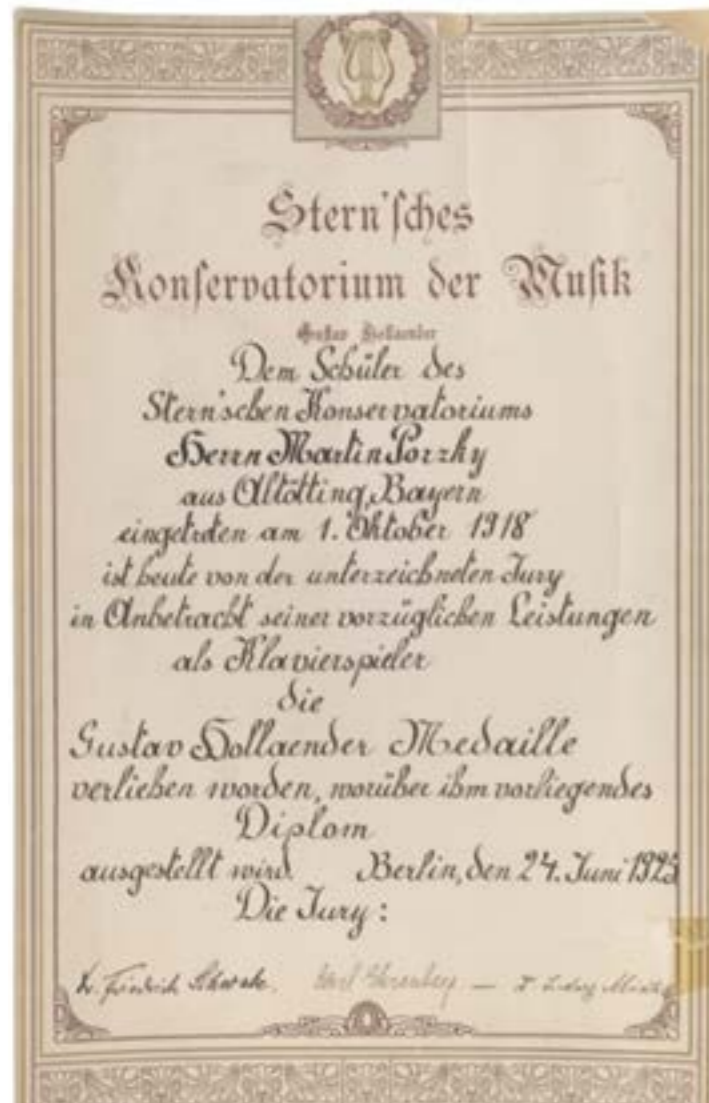 Stern'sches
Konservatorium der Musik
Gustav Hollaender
Dem Schüler des
Stern'schen Konservatoriums
Herrn Martin Porzky
aus Altötting, Bayern
eingetreten am 1. Oktober 1918
ist heute von der unterzeichneten Jury
in Anbetracht seiner vorzüglichen Leistungen
als Klavierspieler
die
Gustav Hollaender Medaille
verliehen worden, worüber ihm vorliegendes
Diplom
ausgestellt wird Berlin, den 24. Juni 1925
Die Jury:
Dr. Friedrich